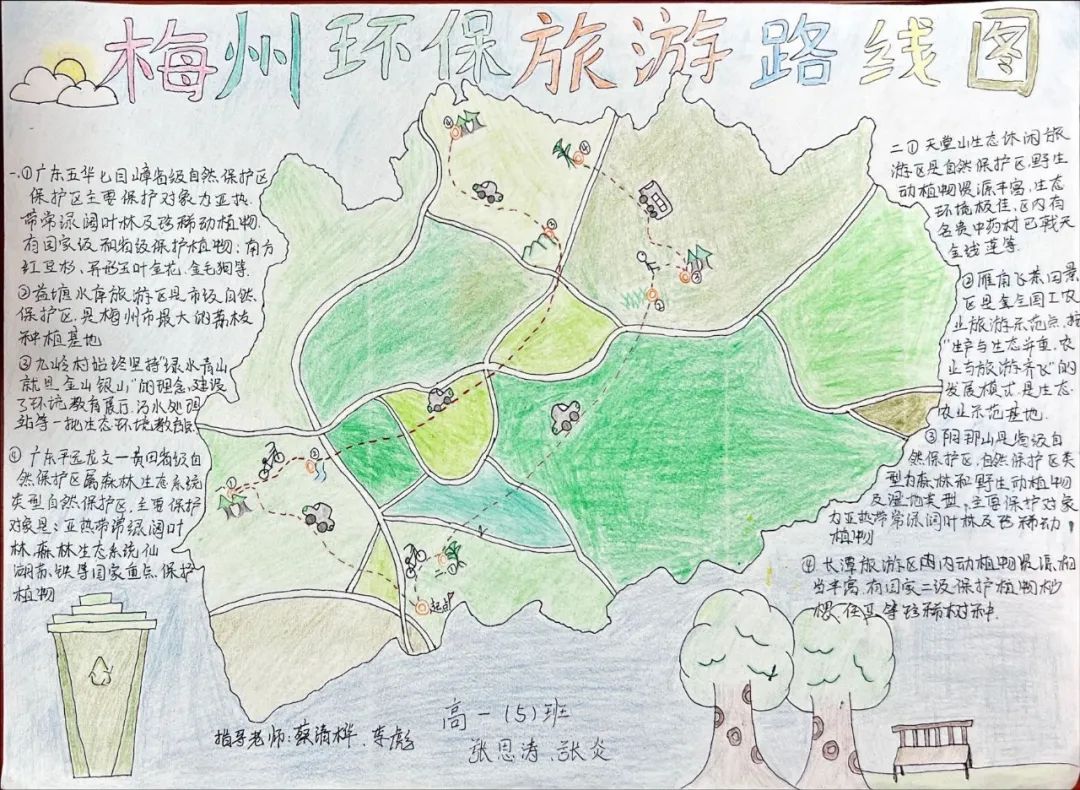 梅州环保旅游路线图
一.①广东五华七目嶂省级自然保护区
保护区主要保护对象为亚热
带常绿阔叶林及珍稀动植物
有国家级和省级保护植物:南方
红豆杉、异形玉叶金花、金毛狗等
②益塘水库旅游区是市级自然
保护区,是梅州市最大的荔枝
种植基地
③九岭村始终坚持“绿水青山
就是金山银山”的理念,建设
了环境教育展厅、污水处理
站等一批生态环境教育点
④广东平远龙文一黄田省级自
然保护区属森林生态系统
类型自然保护区,主要保护
对象是:亚热带常绿阔叶
林森林生态系统仙
湖苏铁等国家重点保护
植物
二①天堂山生态休闲旅
游区是自然保护区野生
动植物资源丰富,生态
环境极佳,区内有
名贵中药材巴戟天
金线莲等
②雁南飞茶田景
区是全国工农
业旅游示范点,
“生产与生态并重,农
业与旅游齐飞”的
发展模式是生态
农业示范基地
③阴那山是省级自
然保护区,自然保护区类
型为森林和野生动植物
及湿地类型,主要保护对象
为亚热带常绿阔叶林及珍稀动
植物
④长潭旅游区内动植物资源相
当丰富,有国家二级保护植物桫
椤等珍稀树种.
④
④
③
③
②
②
①
一
二①
起点
高一(5)班
张思涛、张炎
指导老师:蔡清桦、李彪